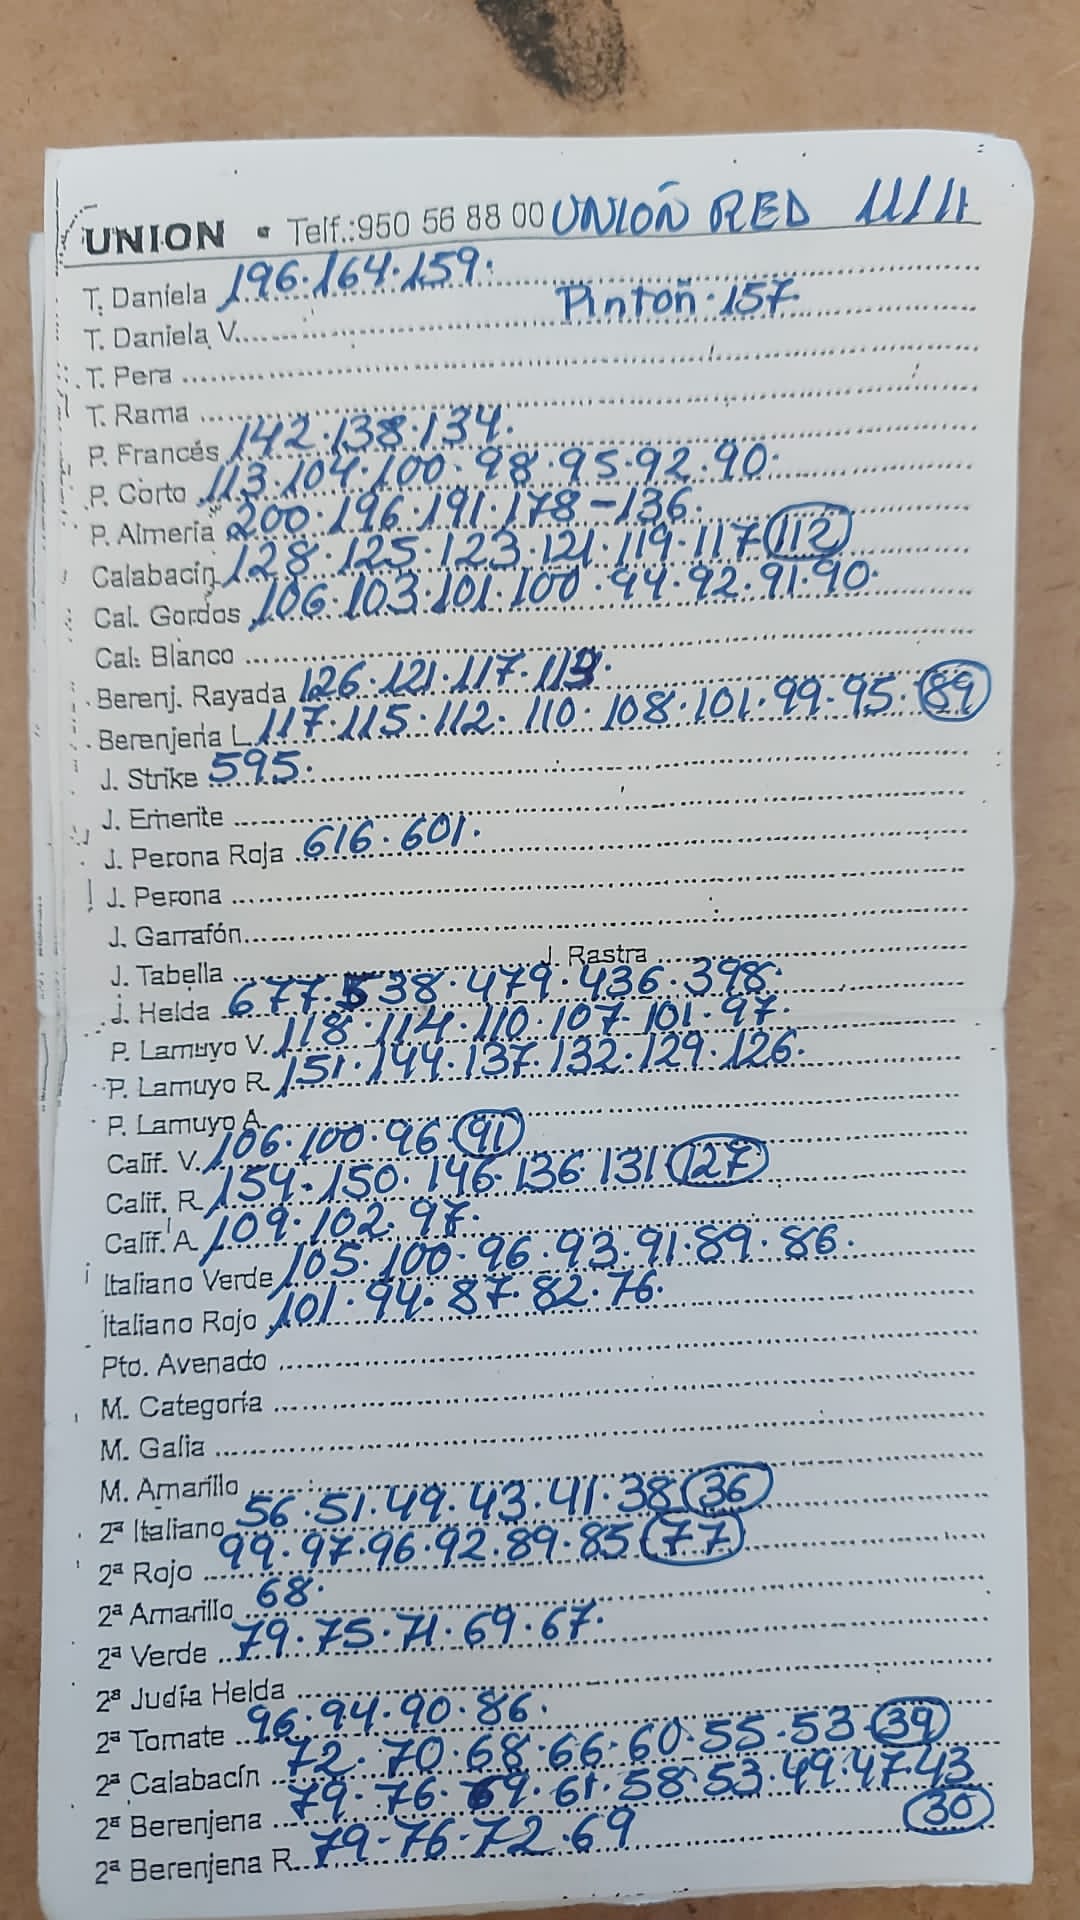 UNION • Telf.:950 56 88 00 UNION RED 11/11
T. Daniela 196·164·159·
Pinton·157·
T. Daniela V.
T. Pera
T. Rama
P. Francés 142·138·134·
P. Corto 113·104·100·98·95·92·90·
P. Almería 200·196·191·178-136·
Calabacín 128·125·123·121·119·117 112
Cal. Gordos 106·103·101·100·94·92·91·90·
Cal. Blanco
Berenj. Rayada 126·121·117·113·
Berenjena L. 117·115·112·110·108·101·99·95·89
J. Strike 595·
J. Emerite
J. Perona Roja 616·601·
J. Perona
J. Garrafón
J. Tabella J. Rastra
J. Helda 677·538·479·436·398·
P. Lamuyo V. 118·114·110·107·101·97·
P. Lamuyo R. 151·144·137·132·129·126·
P. Lamuyo A.
Calif. V. 106·100·96 91
Calif. R. 154·150·146·136·131 127
Calif. A. 109·102·97·
Italiano Verde 105·100·96·93·91·89·86·
Italiano Rojo 101·94·87·82·76·
Pto. Avenado
M. Categoría
M. Galia
M. Amarillo
2ª Italiano 56·51·49·43·41·38 36
2ª Rojo 99·97·96·92·89·85 77
2ª Amarillo 68·
2ª Verde 79·75·71·69·67·
2ª Judía Helda
2ª Tomate 96·94·90·86·
2ª Calabacín 72·70·68·66·60·55·53·39
2ª Berenjena 79·76·69·61·58·53·49·47·43
30
2ª Berenjena R. 79-76-72·69